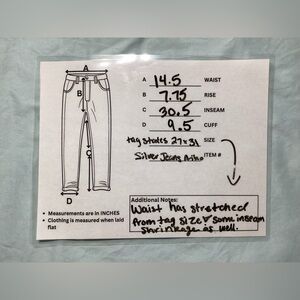 A 14.5 WAIST
B 7.75 RISE
C 30.5 INSEAM
D 9.5 CUFF
tag states 27x31 SIZE
Silver Jeans ITEM #
A
B
C
D
• Measurements are in INCHES
• Clothing is measured when laid flat
Additional Notes:
Waist has stretched
from tag size & some inseam
shrinkage as well.